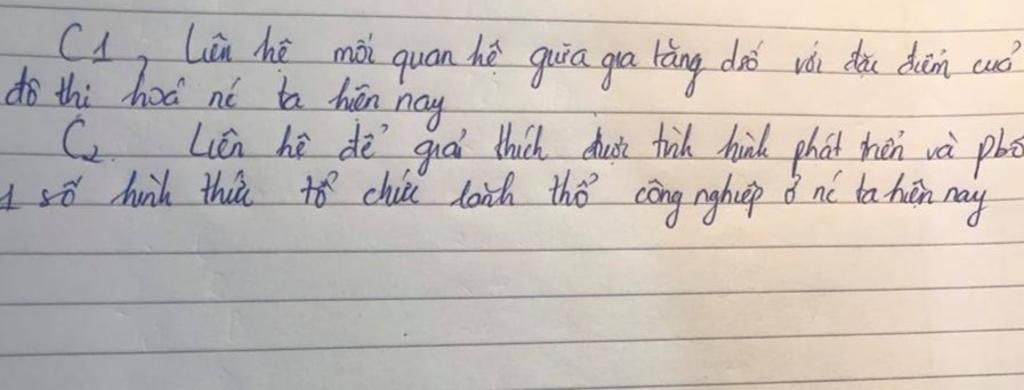 C1, Liên hệ mối quan hệ giữa gia tăng dsố với đặc điểm cuả
đô thị hoá nc ta hiện nay
C2. Liên hệ để giải thích được tình hình phát triển và phbố
1 số hình thức tổ chức lãnh thổ công nghiệp ở nc ta hiện nay